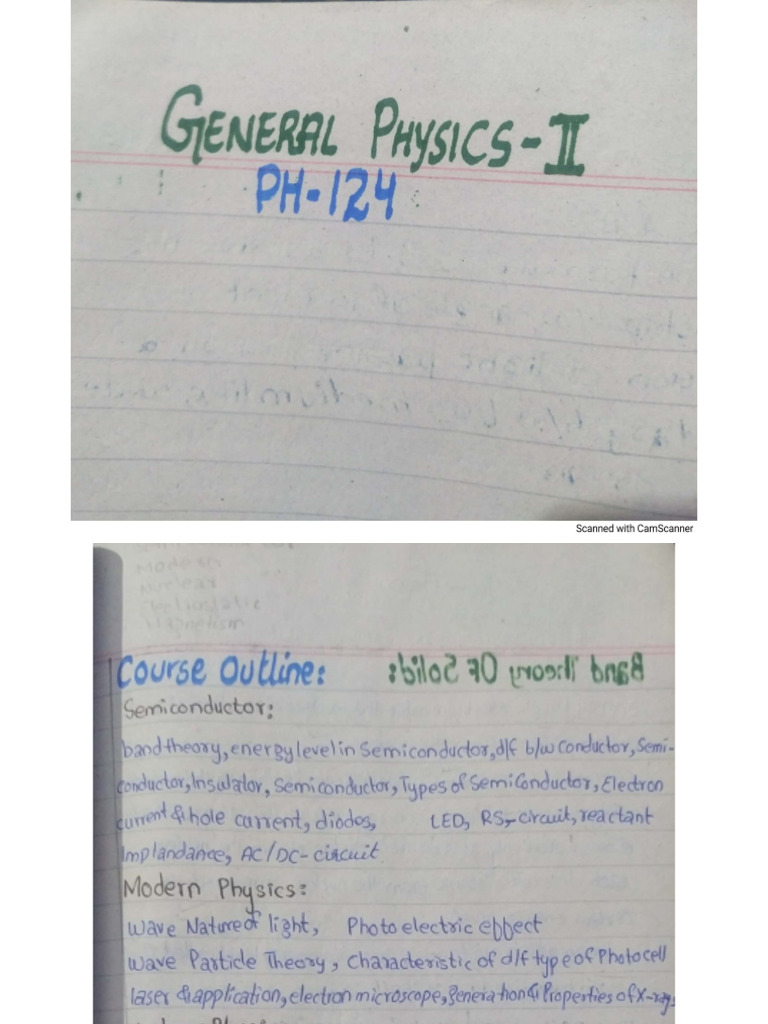 GENERAL PHYSICS-II
PH-124
Scanned with CamScanner
Modern
Nuclear
Magnetism
Course Outline:
Band Theory Of Solids:
Semiconductor:
band theory, energy level in Semiconductor, d/f b/w conductor, Semi-
conductor, Insulator, Semiconductor, Types of Semiconductor, Electron
current & hole current, diodes, LED, RS- circuit, reactant
Implandance, AC/DC-circuit
Modern Physics:
wave Nature of light, Photo electric effect
wave Particle Theory, Characteristic of d/f type of Photocell
laser & application, electron microscope, generation & Properties of X-rays